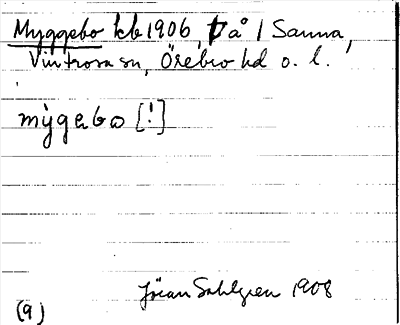 Myggebo kb 1906, t å / Sanna,
Vintrosa sn, Örebro hd o. l.
mỳgebo [!]
Jöran Sahlgren 1908
(9)